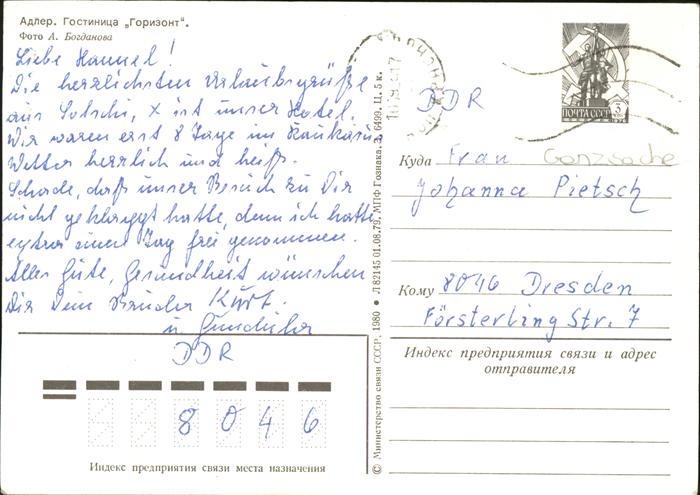 Адлер. Гостиница „Горизонт“.
Фото А. Богданова
Liebe Hannel!
Die herrlichsten Urlaubsgrüße
aus Sotschi, x ist unser Hotel.
Wir waren erst 8 Tage im Kaukasus
Wetter herrlich und heiß.
Schade, daß unser Besuch zu Dir
nicht geklappt hatte, denn ich hatte
extra einen Tag frei genommen.
Alles Gute, Gesundheit wünschen
Dir Dein Bruder Kurt.
u.
DDR
8046
Индекс предприятия связи места назначения
© Министерство связи СССР. 1980 • Л82145 01.08.79. МПФ Гознака. З. 6499. Ц. 5 к.
DDR
ПОЧТА СССР
Куда Frau
Johanna Pietsch
Кому 8046 Dresden
Försterling Str. 7
Индекс предприятия связи и адрес
отправителя